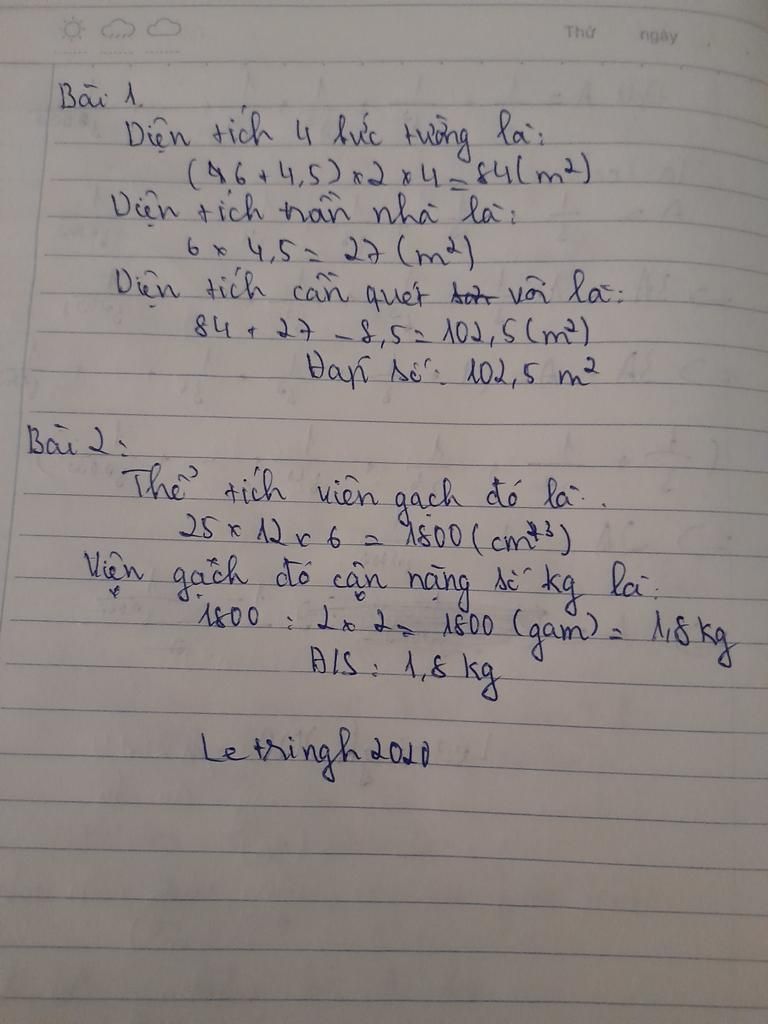 Thứ ngày
Bài 1.
Diện tích 4 bức tường là:
(6 + 4,5) × 2 × 4 = 84 (m²)
Diện tích trần nhà là:
6 × 4,5 = 27 (m²)
Diện tích cần quét vôi là:
84 + 27 - 8,5 = 102,5 (m²)
Đáp số: 102,5 m²
Bài 2:
Thể tích viên gạch đó là:
25 × 12 × 6 = 1800 (cm³)
Viên gạch đó cân nặng số kg là:
1800 : 2 × 2 = 1800 (gam) = 1,8 kg
Đ/S: 1,8 kg
Letringh2020